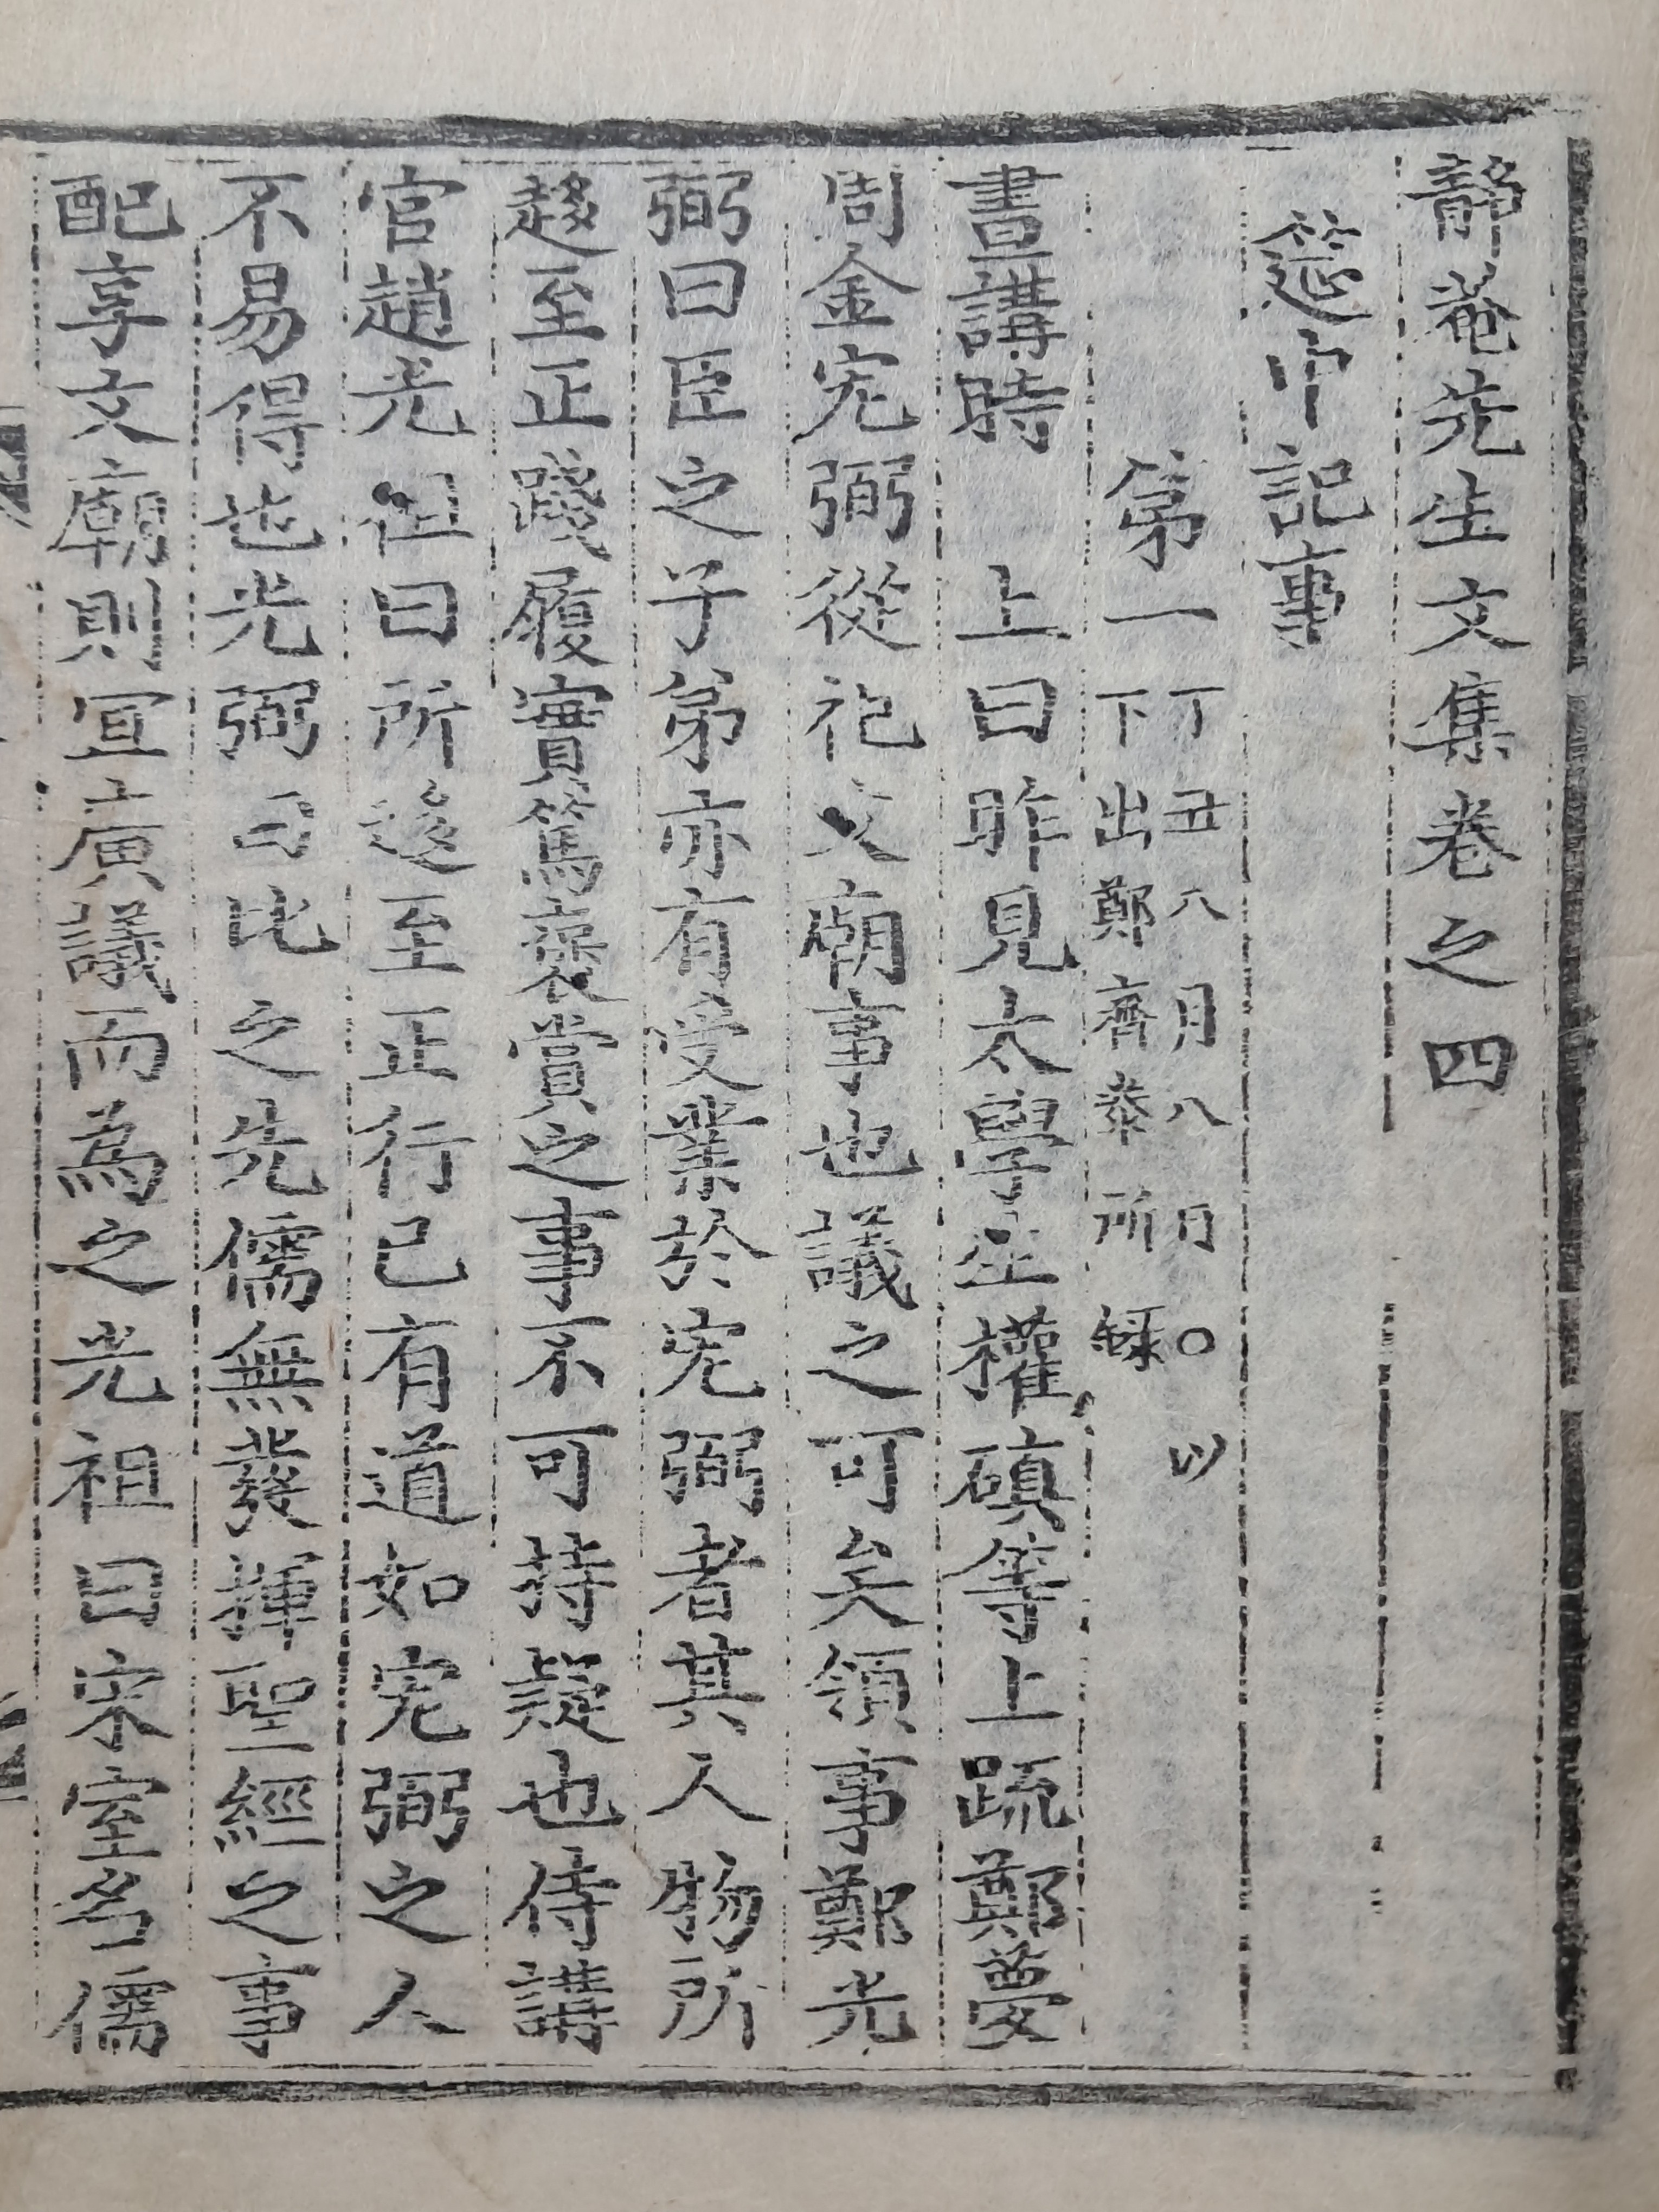 靜菴先生文集卷之四
筵中記事
第一 丁丑八月八日○以
下出鄭齋 所錄
晝講時 上曰昨見太學生權磌等上疏鄭夢
周金宏弼從祀文廟事也議之可矣領事鄭光
弼曰臣之子弟亦有受業於宏弼者其人物所
趍至正踐履實篤褒賞之事不可持疑也侍講
官趙光祖曰所趍至正行己有道如宏弼之人
不易得也光弼曰比之先儒無發揮聖經之事
配享文廟則宜廣議而爲之光祖曰宋室名儒